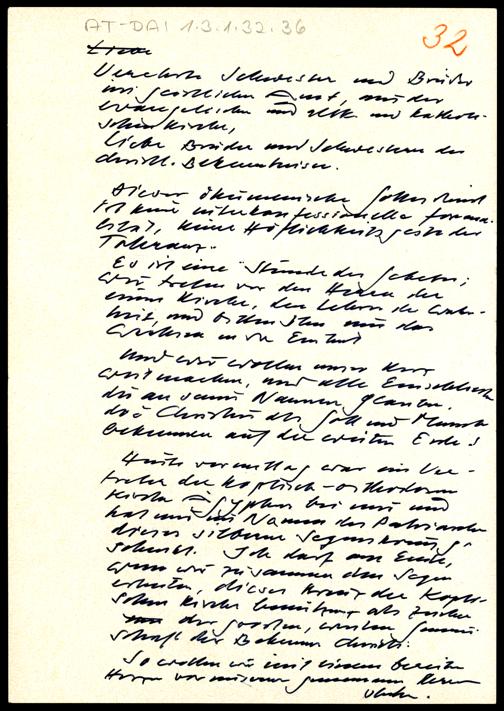 AT-DAI 1.3.1.32.36
32
Liebe
Verehrte Schwestern und Brüder
im geistlichen Amt, aus der
evangelischen und altk. und katholi-
schen Kirche,
liebe Brüder und Schwestern des
christl. Bekenntnisses.
Dieser ökumenische Gottesdienst
ist keine interkonfessionelle Forma-
lität, keine Höflichkeitsgeste der
Toleranz.
Es ist eine Stunde des Gebetes;
wir treten vor den Herrn der
einen Kirche, den Lehrer der Wahr-
heit, und bitten Ihn um das
Wachsen in der Einheit
Und wir wollen unser Herz
weit machen, und alle einschließen
die an seinen Namen glauben.
die Christus als Gott und Mensch
bekennen auf der weiten Erde!
Heute vormittag war ein Ver-
treter der koptisch-orthodoxen
Kirche Ägyptens bei mir und
hat mir im Namen des Patriarchen
dieses silberne Segenskreuz ge-
schenkt. Ich darf am Ende,
wenn wir zusammen den Segen
erteilen, dieses Kreuz der Kopti-
schen Kirche benützen als Zeichen
der großen, weiten Gemein-
schaft der Bekenner Christi.
So wollen wir mit einem bereiten
Herzen vor unseren gemeinsamen Herrn